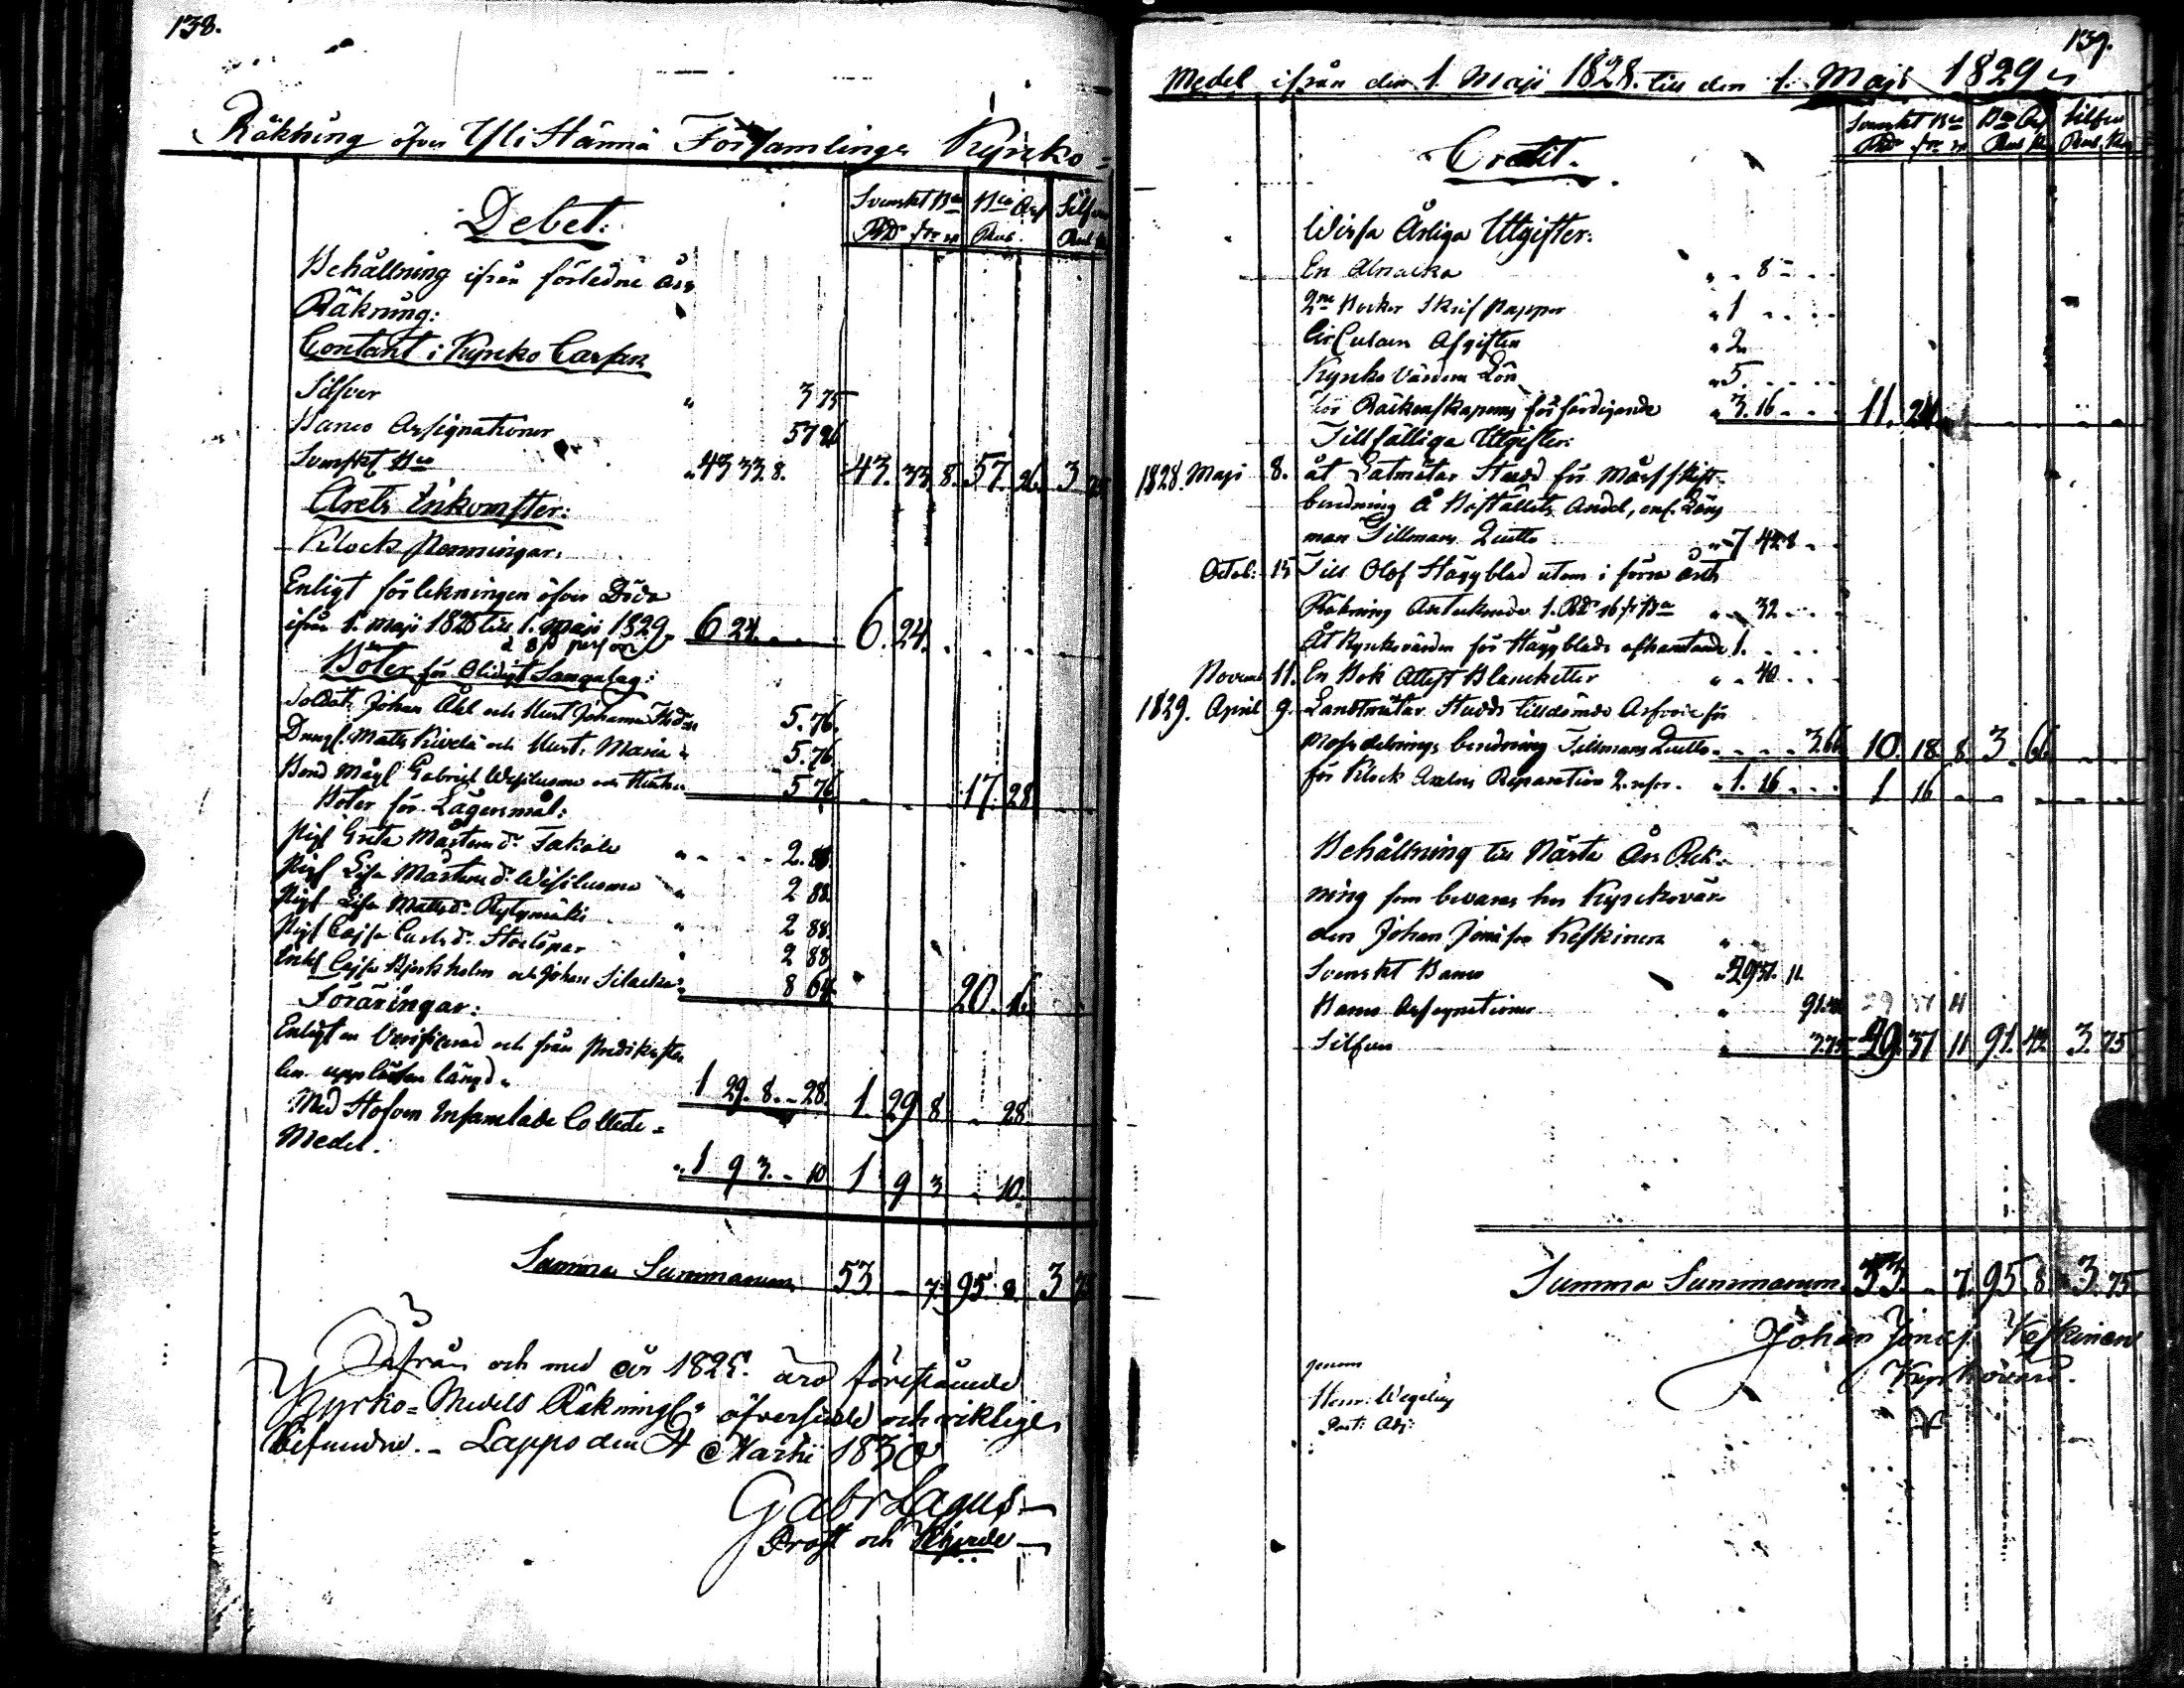 138.
Räkning öfver Ylistämä Församlings Kyrko=
Svenskt Bco Bco Ass Silfver
RD s r Rub. Rub K
Debet:
Behållning ifrån förledne Års
Räkning:
Contant i Kyrko Cassan
Silfver " 3 75
Banco Assignationer 57 26
Svenskt Bco " 43 33. 8. 43. 33. 8. 57. 26. 3 75
Årets Inkomster:
Klock Penningar.
Enligt förtekningen öfver Döda
ifrån 1. Maji 1828 till 1. Maji 1829. 6 24 6. 24.
à 8 s person
Böter för Olidigt Sängalag:
Soldat Johan Åhl och Hust. Johanna 5. 76.
Matts Kivelä och Hust. Maria " 5. 76.
Gabriel och Hustru 5 76 17. 28
Böter för Lägersmål:
Pig. Greta Mårtensdr Takala 2. 88.
Pig. Lisa Mårtensdr 2 88.
Pig. Lisa Mattsdr Rytymäki 2 88.
Pig. Cajsa Carlsdr 2 88
Enk. Cajsa Björkholm och Johan 8 64. 20. 16.
Föräringar:
Enligt en Verificerad och från Predikstolen
upplästen längd " 1 29. 8. - 28. 1. 29 8 - 28.
Med Håfven Insamlade Collecte=
Medel. " 1 9 3. - 10 1 9 3 - 10.
Summa Summarum 53 - 7. 95. 8. 3 75
Ifrån och med år 1825. äro förestående
Kyrko=Medels Räkning öfversedde och riktige
befundne. - Lappo den 4 Martii 1830
Gabr Lagus
Prost och Kyrkoherde
139.
Medel ifrån den 1. Maji 1828. till den 1. Maji 1829
Svenskt Bco Bco Ass Silfver
RD s r Rub. K Rub. K
Credit.
Wissa Årliga Utgifter:
En Almacka " - 8 - -
2ne Böcker Skrif Papper " 1 - - -
Circulair Afgiften " 2
Kyrko Värdens Lön " 5. - - -
för Räkenskapens författigande " 3. 16 - - 11. 24.
Tillfälliga Utgifter:
1828. Maji 8. åt Landtmätar Studd för
beredning å Boställets Andel, enl. Läns
man Tillmans Quitto " 7 42 8 - -
Octob: 15 Till Olof Häggblad utom i förra årets
Räkning Antecknade 1. RD 16 s Bco " - 32 - -
Åt Kyrkovärden för Häggblads afhämtande 1. - - -
Novemb 11. En Bok Attest Blanketter " - 40 - -
1829. April 9. Landtmätar Studds tilldömde
beredning Tillmans Quitto - - - 3 66 10. 18. 8 3. 66.
för Klock Axelns Reparation 2. " 1. 16 - - - 1 16 - - -
Behållning till Nästa Års Räk=
ning som bevaras hos Kyrckovär=
den Johan Jonasson Keskinen "
Svenskt Banco " 29 37. 11.
Banco Assignationer " 91. 42 29 37 11
Silfver 3. 75 29. 37 11 91. 42 3. 75
Summa Summarum. 53. - 7. 95. 8. 3. 75.
Johan Jonas. Keskinen
Kyrkovärd.
genom
Henr. Wegelius
Past: Adj: